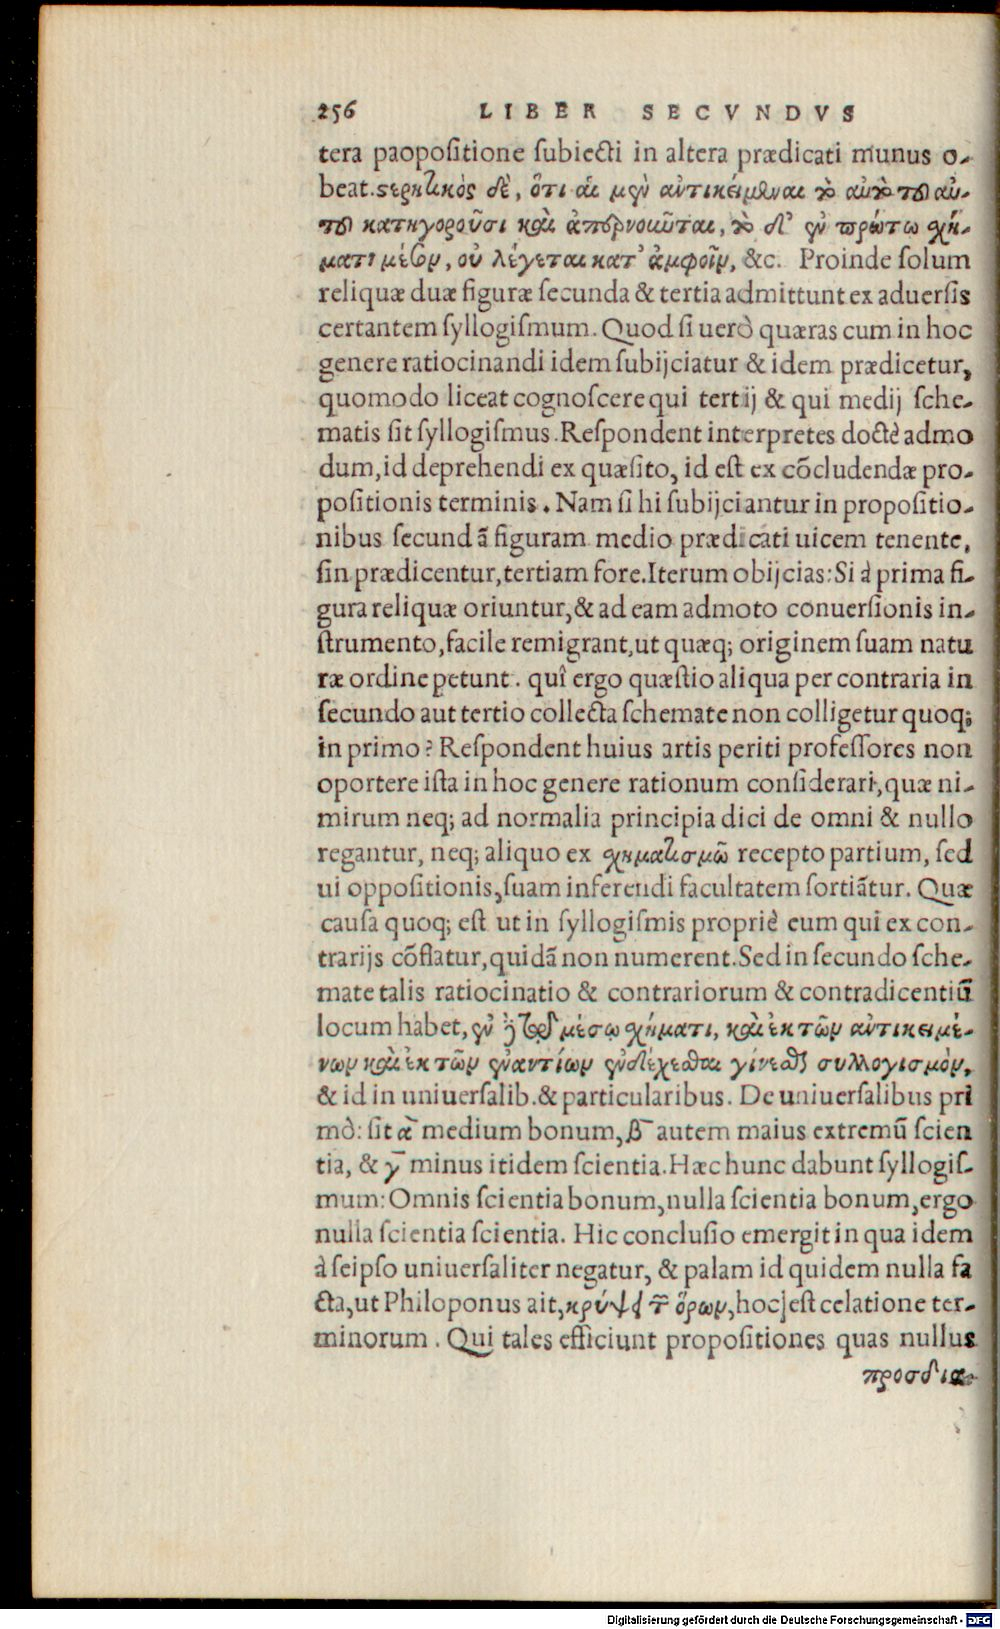 256 LIBER SECVNDVS
tera paopositione subiecti in altera prædicati munus o-
beat. στερητικὸς δὲ, ὅτι αἱ μὲν ἀντικείμεναι τὸ αὐτὸ τοῦ αὐ-
τοῦ κατηγοροῦσι καὶ ἀπαρνοῦνται, τὸ δ' ἐν πρώτῳ σχή-
ματι μέσον, οὐ λέγεται κατ' ἀμφοῖν, &c. Proinde solum
reliquæ duæ figuræ secunda & tertia admittunt ex aduersis
certantem syllogismum. Quod si uerò quæras cum in hoc
genere ratiocinandi idem subijciatur & idem prædicetur,
quomodo liceat cognoscere qui tertij & qui medij sche-
matis sit syllogismus. Respondent interpretes doctè admo
dum, id deprehendi ex quæsito, id est ex cōcludendæ pro-
positionis terminis. Nam si hi subijciantur in propositio-
nibus secundā figuram medio prædicati uicem tenente,
sin prædicentur, tertiam fore. Iterum obijcias: Si à prima fi-
gura reliquæ oriuntur, & ad eam admoto conuersionis in-
strumento, facile remigrant, ut quæq; originem suam natu
ræ ordine petunt. quî ergo quæstio aliqua per contraria in
secundo aut tertio collecta schemate non colligetur quoq;
in primo? Respondent huius artis periti professores non
oportere ista in hoc genere rationum considerari, quæ ni-
mirum neq; ad normalia principia dici de omni & nullo
regantur, neq; aliquo ex σχηματισμῶ recepto partium, sed
ui oppositionis, suam inferendi facultatem sortiātur. Quæ
causa quoq; est ut in syllogismis propriè eum qui ex con-
trarijs cōflatur, quidā non numerent. Sed in secundo sche-
mate talis ratiocinatio & contrariorum & contradicentiū
locum habet, ἐν δὲ τῷ μέσῳ σχήματι, καὶ ἐκ τῶν ἀντικειμέ-
νων καὶ ἐκ τῶν ἐναντίων ἐνδέχεσθαι γίνεσθαι συλλογισμὸν,
& id in uniuersalib. & particularibus. De uniuersalibus pri
mò: sit α̅ medium bonum, β̅ autem maius extremū scien
tia, & γ̅ minus itidem scientia. Hæc hunc dabunt syllogis-
mum: Omnis scientia bonum, nulla scientia bonum, ergo
nulla scientia scientia. Hic conclusio emergit in qua idem
à seipso uniuersaliter negatur, & palam id quidem nulla fa
cta, ut Philoponus ait, κρύψει τῶν ὅρων, hoc est celatione ter-
minorum. Qui tales efficiunt propositiones quas nullus
προσδια-
Digitalisierung gefördert durch die Deutsche Forschungsgemeinschaft - DFG